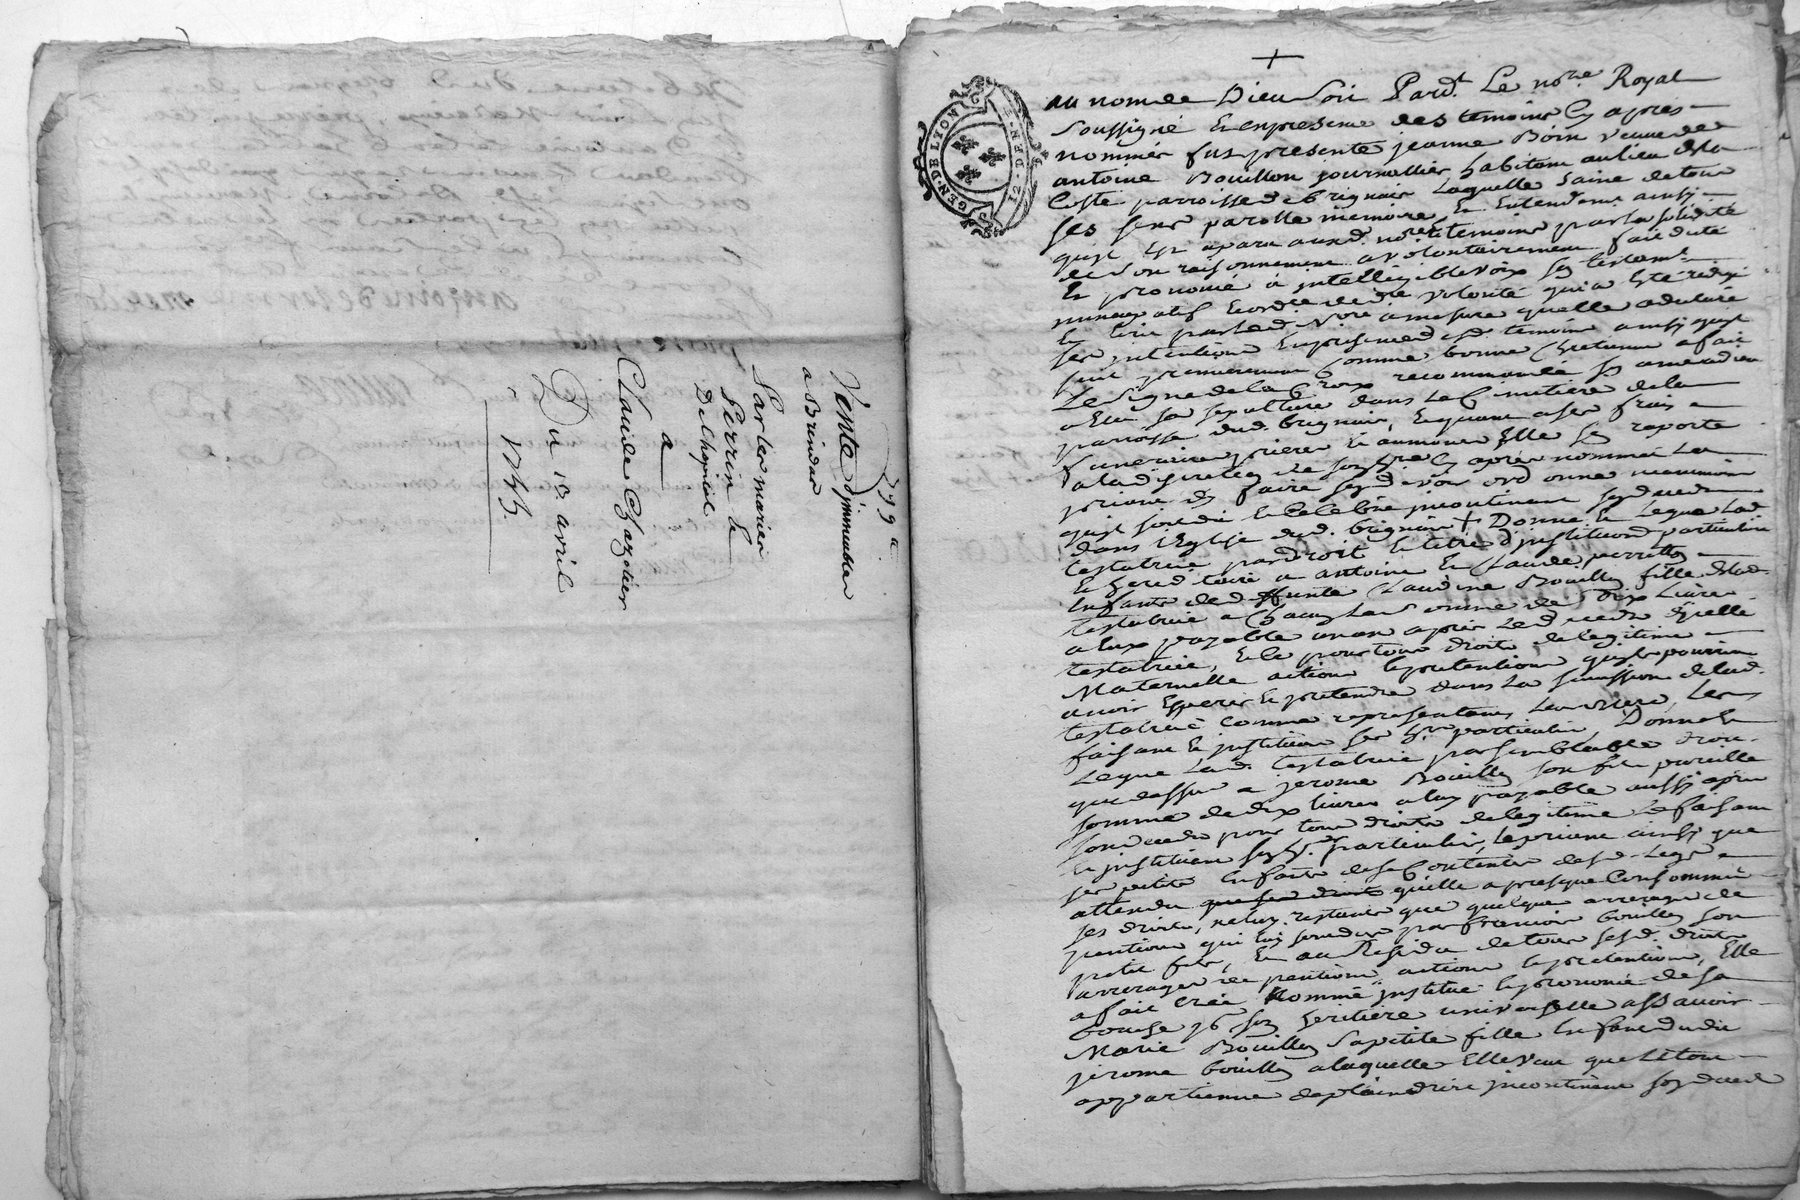 Vente d'immeubles
a Brindas
Sarles mariés
Perrin &
Delhopital
a
Claude Chazotier
Du 10 avril
1745.
GEN · DE LYON
12 · DEN · E ·
+
au nom de Dieu soit Pard.t Le no.re Royal
soussigné et en presence des temoins cy apres
nommés fut presente jeanne Boin veuve de
antoine Bouillon journallier habitant au lieu de la
Coste parroisse de brignais Laquelle saine de tous
ses sens parolle memoire et Entendem.t ainsy
qu'il est aparu aud. no.re et temoins par la solidité
de son raisonnement a volontairement fait dicté
et prononcé a intelligible voix son testam.t
nuncupatif et ord.ce de d.re volonté qui a été redigé
par led. no.re a mesure quelle a declaré
ses intentions en presence desd. temoins ainsy quil
suit premierement comme bonne Chretienne a fait
Le Signe de la Croix recommandé son ame a dieu
a Elu sa sepulture dans Le Cimitiere de la
parroisse dud. brignais, et quant a ses frais
funeraires prieres et aumones Elle s'en raporte
a la discretion de son h.re cy apres nommée La
priant d'en faire son devoir ordonne neanmoins
quil soit dit et Celebré incontinent son deceds
dans l'Eglise dud. brignais + Donne et Legue Lad.
testatrice par droit et titre d'institution particuliere
et hereditaire a antoine et Claude perret
Enfants de deffunte Claudine Bouillon fille de lad.
testatrice a Chacun La Somme de dix Livres
a Eux payable un an apres Le deceds d'ycelle
testatrice, Et ce pour tous droits de legitime
Maternelle actions et pretentions quils pourroient
avoir Esperer et pretendre dans La Succession de lad.
testatrice Comme representants Leur mere, Les
faisant et instituant ses h.rs particuliers, Donne et
Legue Lad. testatrice par semblable droit
que dessus a jerome Bouillon son fils pareille
somme de dix livres a luy payable aussy apres
son deceds pour tous droits de legitime Le faisant
et instituant son h.r particulier, Le priant ainsy que
ses petits Enfants de se Contenter desd. Legs
attendu quelle a presque Consommé
ses droits, ne luy restant que quelque arrerages de
pention qui luy sont dus par francois bouillon son
petit fils, et au Residu de tous sesd. droits
arrerages de pentions actions et pretentions, Elle
a fait Créé Nommé institué et prononcé de sa
bouche po.r son heritiere universelle assavoir
Marie Bouillon sa petite fille Enfant dudit
jerome bouillon a laquelle Elle veut que Le tout
appartienne de plein droit incontinent son deceds